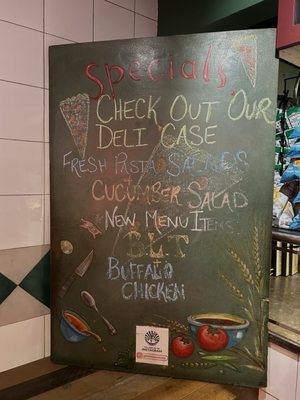 Specials
CHECK OUT OUR
DELI CASE
FRESH PASTA SALADS
CUCUMBER SALAD
NEW MENU ITEMS
BLT
BUFFALO
CHICKEN
INSTAGRAM